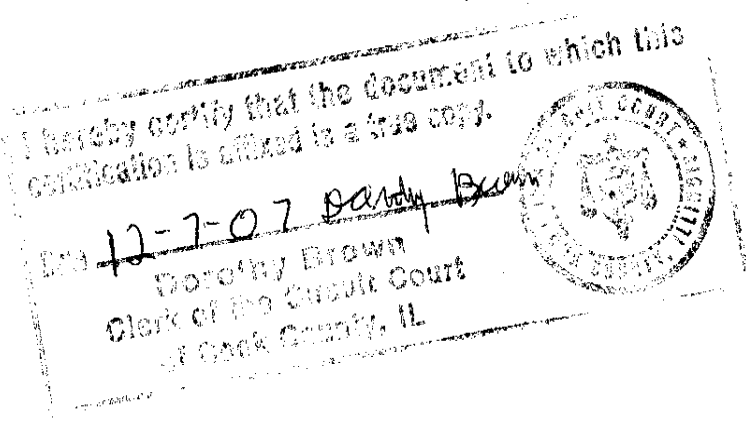 I hereby certify that the document to which this
certification is affixed is a true copy.
12-7-07 Dorothy Brown
Dorothy Brown
Clerk of the Circuit Court
of Cook County, IL
CIRCUIT COURT